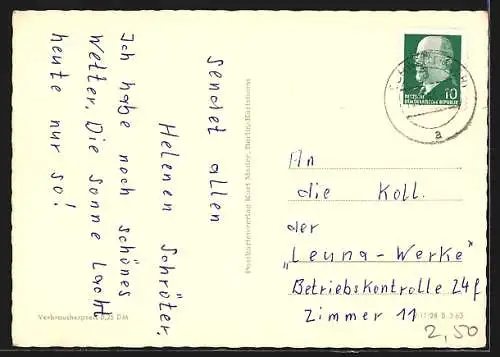 Ich habe noch schönes
Wetter. Die Sonne Lacht
heute nur so!
sendet allen
Helenen Schröter.
Postkartenverlag Kurt Mader, Berlin-Karlshorst
Verbraucherpreis 0,25 DM
10
DEUTSCHE
DEMOKRATISCHE REPUBLIK
a
An
die Koll.
der
"Leuna-Werke"
Betriebskontrolle 24f
Zimmer 11
2,50